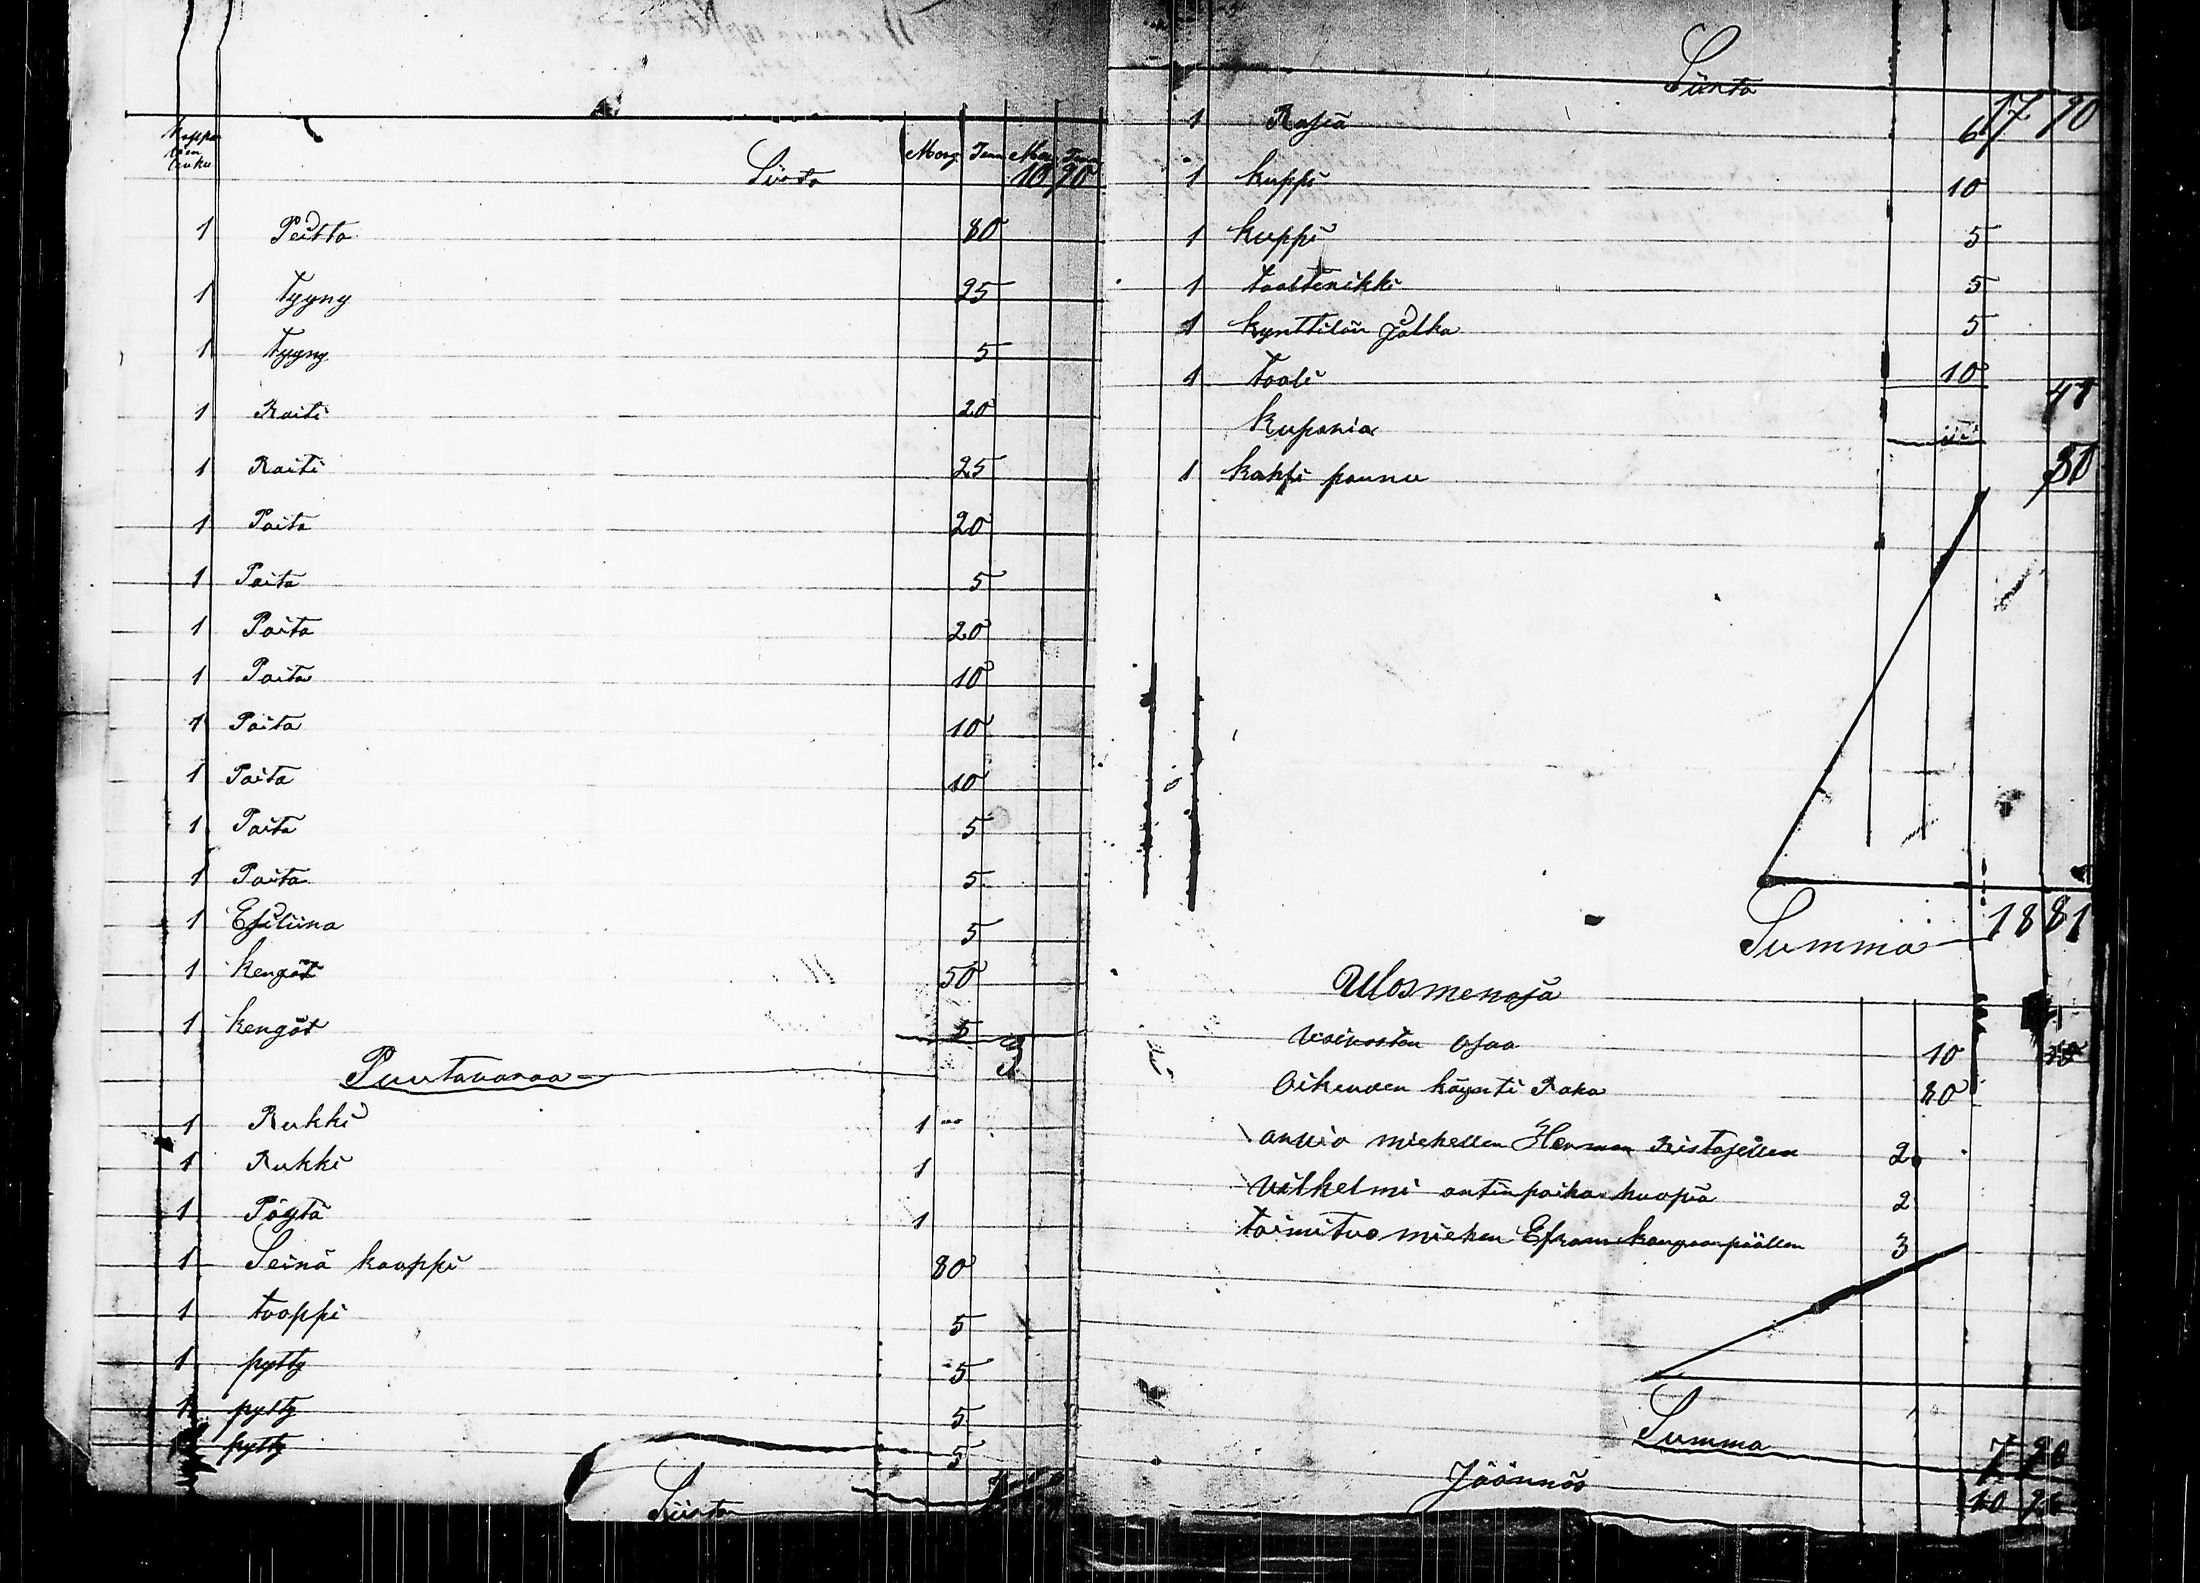 Kappa
lein
luku
Marg Penn Mar Penn
Siirto 10 90
1 Peitto 80
1 tyyny 25
1 tyyny 5
1 Raiti 20
1 Raiti 25
1 Paita 20
1 Paita 5
1 Paita 20
1 Paita 10
1 Paita 10
1 Paita 10
1 Paita 5
1 Paita 5
1 Esiliina 5
1 kengät 50
1 kengät 5 3
Puutavaraa
1 Rukki 1
1 Rukki 1
1 Pöytä 1
1 Seinä kaappi 80
1 tooppi 5
1 pytty 5
1 pytty 5
1 pytty 5
Siirto
Siirto 17 90
1 Rasia 6
1 kuppi 10
1 kuppi 5
1 taaltrikki 5
1 kynttilän Jalka 5
1 tooli 10 41
Kuparia
1 kahfi pannu 50
Summa 18 81
Ulosmenoja
vaivasten osaa 10
Oikeuden käynti Raha 80
arvio miehellen Herman Ristaseллen 2
vilhelmi antinpoika kuopia 2
toimitus miehen Efraim kangaanpäällen 3
Summa 7 90
Jäännös 10 91